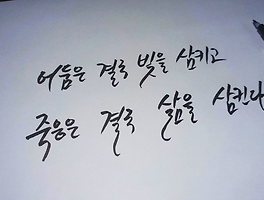 어둠은 결국 빛을 삼키고
죽음은 결국 삶을 삼킨다